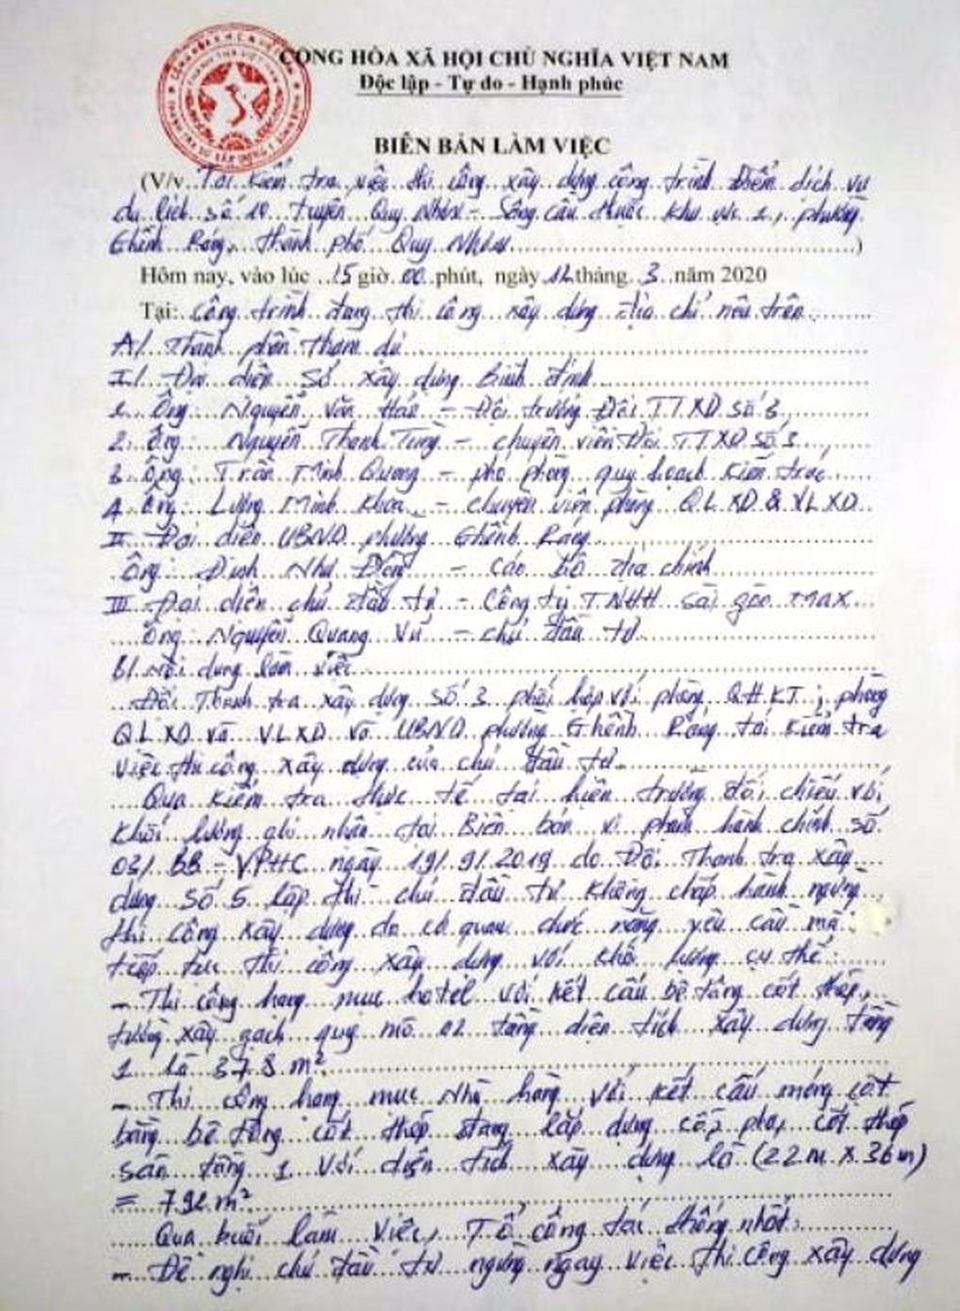 CỘNG HÒA XÃ HỘI CHỦ NGHĨA VIỆT NAM
Độc lập - Tự do - Hạnh phúc
BIÊN BẢN LÀM VIỆC
(V/v Tới kiểm tra việc thi công xây dựng công trình Điểm dịch vụ
du lịch số 10 tuyến Quy Nhơn - Sông Cầu thuộc khu vực 2, phường
Ghềnh Ráng, thành phố Quy Nhơn)
Hôm nay, vào lúc 15 giờ 00 phút, ngày 12 tháng 3 năm 2020
Tại: Công trình đang thi công xây dựng địa chỉ nêu trên
A/ Thành phần tham dự
I/ Đại diện Sở xây dựng Bình Định
1. Ông: Nguyễn Văn Hán - Đội trưởng Đội TTXD số 3
2. Ông: Nguyễn Thanh Tùng - chuyên viên Đội TTXD số 3
3. Ông: Trần Minh Quang - phó phòng quy hoạch kiến trúc
4. Ông: Lương Minh Khoa - chuyên viên phòng QLXD & VLXD
II Đại diện UBND phường Ghềnh Ráng
Ông: Đinh Như - Cán bộ địa chính
III Đại diện chủ đầu tư - Công ty TNHH Sài Gòn Max
Ông: Nguyễn Quang Vũ - chủ đầu tư
B/ Nội dung làm việc
Đội Thanh tra xây dựng số 3 phối hợp với phòng QHKT; phòng
QLXD và VLXD và UBND phường Ghềnh Ráng tới kiểm tra
việc thi công xây dựng của chủ đầu tư
Qua kiểm tra thực tế tại hiện trường đối chiếu với
khối lượng ghi nhận tại Biên bản vi phạm hành chính số
03/BB-VPHC ngày 19/9/2019 do Đội Thanh tra xây
dựng số 5 lập thì chủ đầu tư không chấp hành ngừng
thi công xây dựng do cơ quan chức năng yêu cầu mà
tiếp tục thi công xây dựng với khối lượng cụ thể:
- Thi công hạng mục hotel với kết cấu bê tông cốt thép,
tường xây gạch quy mô 02 tầng diện tích xây dựng tầng
1 là 378 m²
- Thi công hạng mục Nhà hàng với kết cấu móng cột
bằng bê tông cốt thép đang lắp dựng cốp pha, cốt thép
sàn tầng 1 với diện tích xây dựng là (22m x 36m)
= 792 m²
Qua buổi làm việc, Tổ công tác thống nhất:
- Đề nghị chủ đầu tư ngừng ngay việc thi công xây dựng